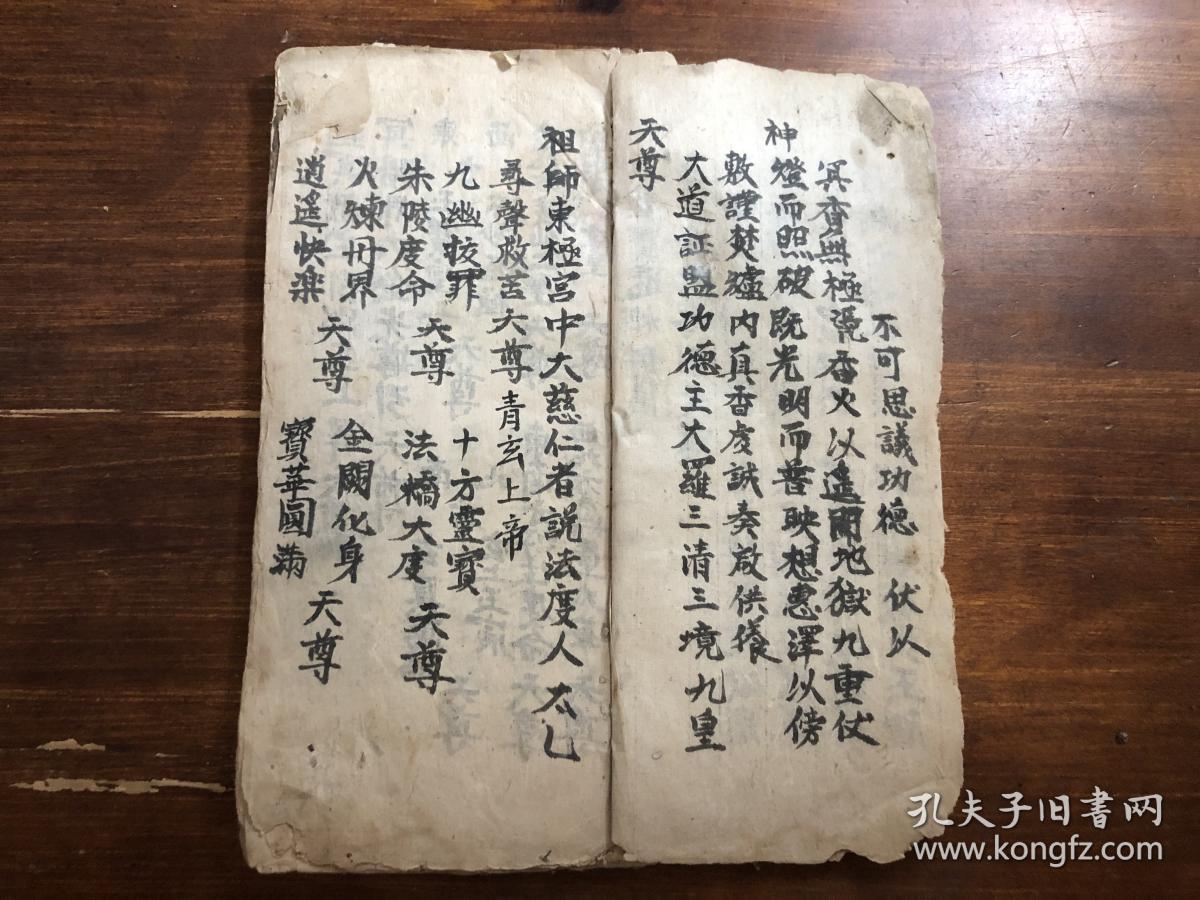 不可思議功德 伏以
冥資無極凴香火以遙開地獄九重仗
神燈而照破既光明而普映想惠澤以傍
敷謹焚爐内真香虔誠奏啟供養
大道証盟功德主大羅三清三境九皇
天尊
祖師東極宮中大慈仁者說法度人 太乙
尋聲救苦天尊青玄上帝
九幽拔罪 天尊 十方靈寶 天尊
朱陵度命 法橋大度
火煉丹界 天尊 金闕化身 天尊
逍遥快楽 寳華圓滿
孔夫子旧书网
www.kongfz.com